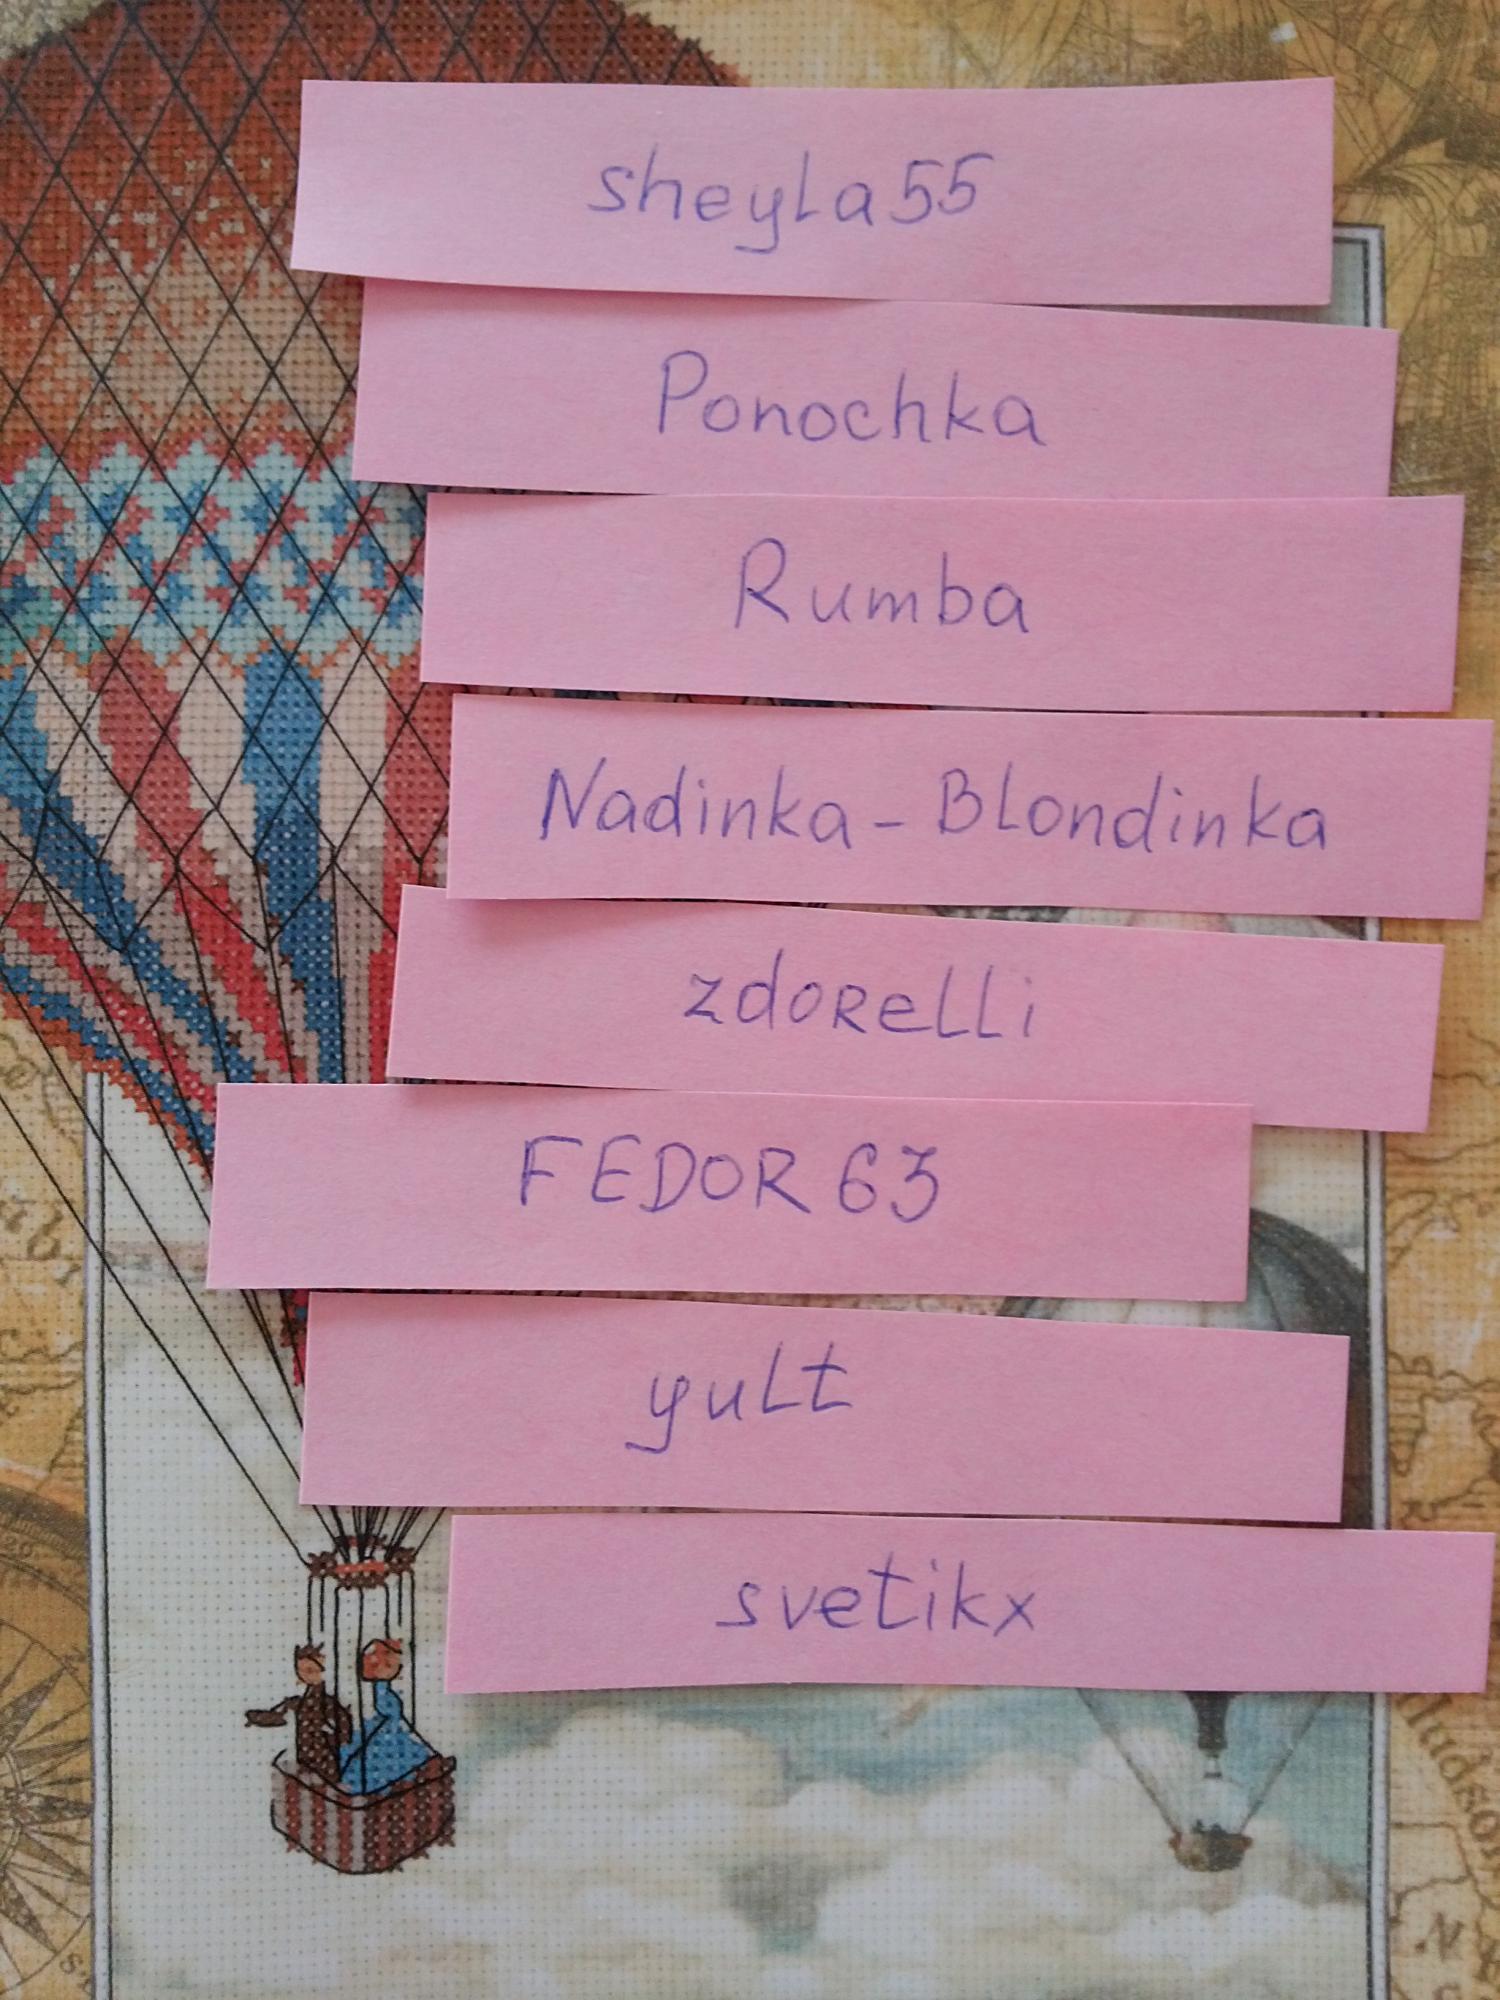 sheyla55
Ponochka
Rumba
Nadinka-Blondinka
zdorelli
FEDOR 63
yult
svetikx